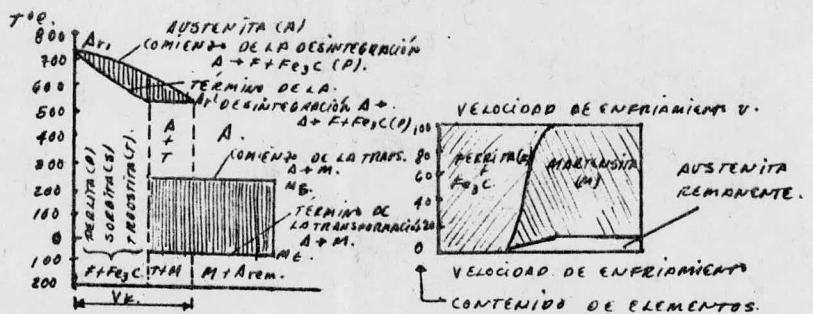 T°C.
800
700
600
500
400
300
200
100
0
100
200
Ar₁
AUSTENITA (A)
COMIENZO DE LA DESINTEGRACIÓN
A → F + Fe₃C (P).
TÉRMINO DE LA
Ar' DESINTEGRACIÓN A →
A → F + Fe₃C (P)
A + T
A.
COMIENZO DE LA TRANS.
A → M.
TÉRMINO DE
LA TRANSFORMACIÓN
A → M.
PERLITA (P)
SORBITA (S)
TROOSTITA (T).
F + Fe₃C
T + M
M + A rem.
VK.
VELOCIDAD DE ENFRIAMIENTO V.
100
80
60
40
20
0
FERRITA (F)
+
Fe₃C.
MARTENSITA
(M)
AUSTENITA
REMANENTE.
VELOCIDAD DE ENFRIAMIENTO
CONTENIDO DE ELEMENTOS.